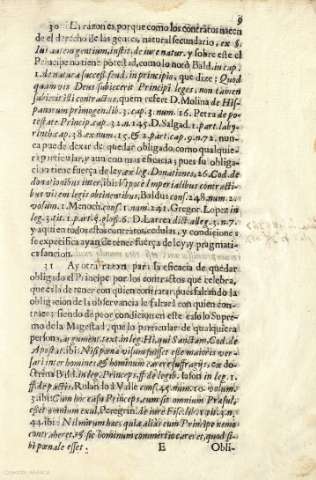 9
30 La razon es porque como los contratos nacen
de el derecho de las gentes, natural secundario, ex §.
Ius autem gentium, instit. de iure natur. y sobre este el
Principe no tiene potestad, como lo notò Bald. in cap.
1. de natura success. feud. in principio, que dize; Quod
quamvis Deus subiecerit Principi leges, non tamen
subiecit illi contractus, quem refere D. Molina de His-
panorum primogen. lib. 3. cap. 3. num. 16. Petra de po-
testate Princip. cap. 32. n. 145. D. Salgad. 1. part. laby-
rinth. cap. 38. ex num. 15. & 2. part. cap. 9. n. 72. nun-
ca puede dexar de quedar obligado como qualquie-
r particular, y aun con mas eficacia; pues su obliga-
cion tiene fuerça de ley, ex leg. Donationes, 26. Cod. de
donationibus inter, ibi: Vtpote Imperialibus contracti-
bus vicem legis obtinentibus, Baldus cons. 248. num. 2.
volum. 1. Menoch. cons. 1. num. 241. Gregor. Lopez in
leg. 3. tit. 1. part. 5. glos. 6. D. Larrea dict. alleg. 3. n. 7.
y aqui en todos estos contratos, cedulas, y condiciones
se expecifica ayan de tener fuerça de ley, y pragmati-
ca sancion.
31 Ay otra razon para la eficacia de quedar
obligado el Principe por los contractos que celebra,
que es la de tener con quien contratar; pues faltando la
obligacion de la observancia le faltarà con quien con-
trae; siendo de peor condicion en este caso lo Supre-
mo de la Magestad, que lo particular de qualquiera
persona, argument. text. in leg. Hi, qui Sanctam, Cod. de
Apostat. ibi: Nisi pœna visum fuisset esse maiores ver-
sari inter homines, & hominum carere suffragijs, ex do-
ctrina Bald. in leg. Princeps, ff. de legib. Iason in leg. 1.
ff. de pactis, Roland. à Valle cons. 45. num. 10. volum.
3. ibi: Cum hoc casu Princeps, cum sit omnium Præsul,
esset omnium exul. Peregrin. de iure Fisc. lib. 1. tit. 3. n.
44. ibi: Nil mirum hæc quia aliàs cum Principe nemo
contraheret, & sic hominum commertio careret, quod si-
bi pœnale esset.
E
Obli-